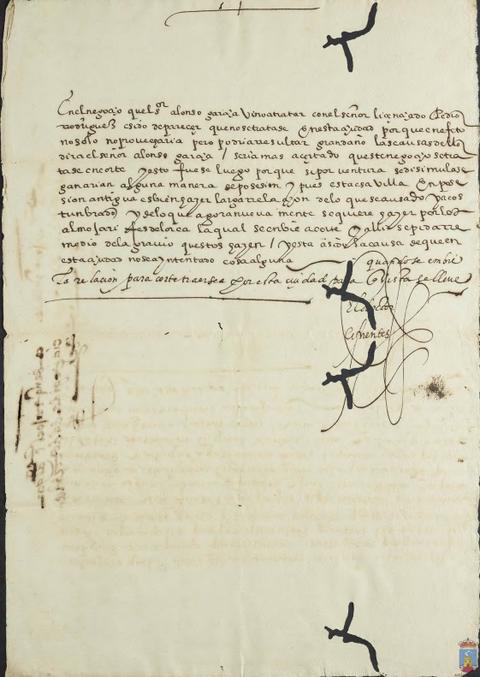 En el negoçio quel sor alonso garçia vino a tratar con el señor liçençiado Pedro
rodriguez es mi pareçer que no se trate En esta çiudad porque en efeto
no solo no proueçaria pero podria resultar gran daño las causas dello
dira el señor alonso garçia / seria mas açertado queste negoçio se tra
tase en corte y esto fuese luego porque si por ventura se disimulase
ganarian alguna manera de posesion y pues esta esa villa En pos
sion antigua es bien hazer la rrelaçion de lo que se a usado y acos
tunbrado y de lo que agora nueua mente se quiere hazer por los
almojarifes de lorca la qual se enbie a corte y alli se pida rre
medio del agrauio questos hazen / y esta a sido la causa se queen
esta çiudad no se a yntentado cosa alguna quando se enbie
la relaçion para corte traerse a por esta çiudad para que vista se lleue
El doctor
Cifuentes